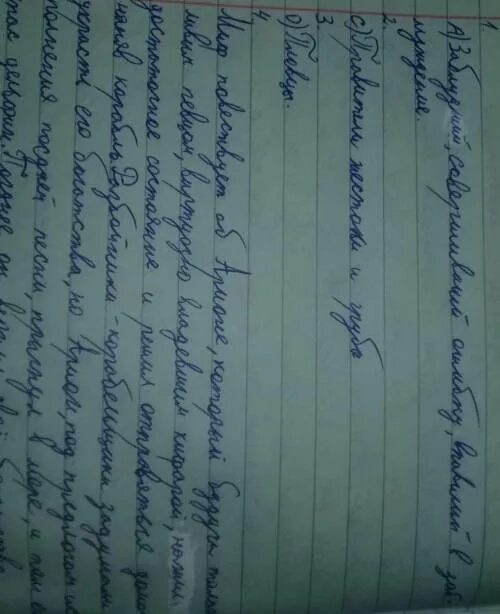 1.
А) Заблудший, совершивший ошибку, впавший в заб
луждение.
2.
С) Правители жестоки и грубы
3.
D) Певцы.
4.
Миф повествует об Арионе, который будучи талант
ливым певцом, виртуозно владевшим кифарой, нажил
достаточное состояние и решил отправиться домо
наняв корабль. Разбойники-корабельщики задумали
украсть его богатства, но Арион, под предлогом ис
полнения последней песни, прыгнул в море, и там е
спас дельфин.